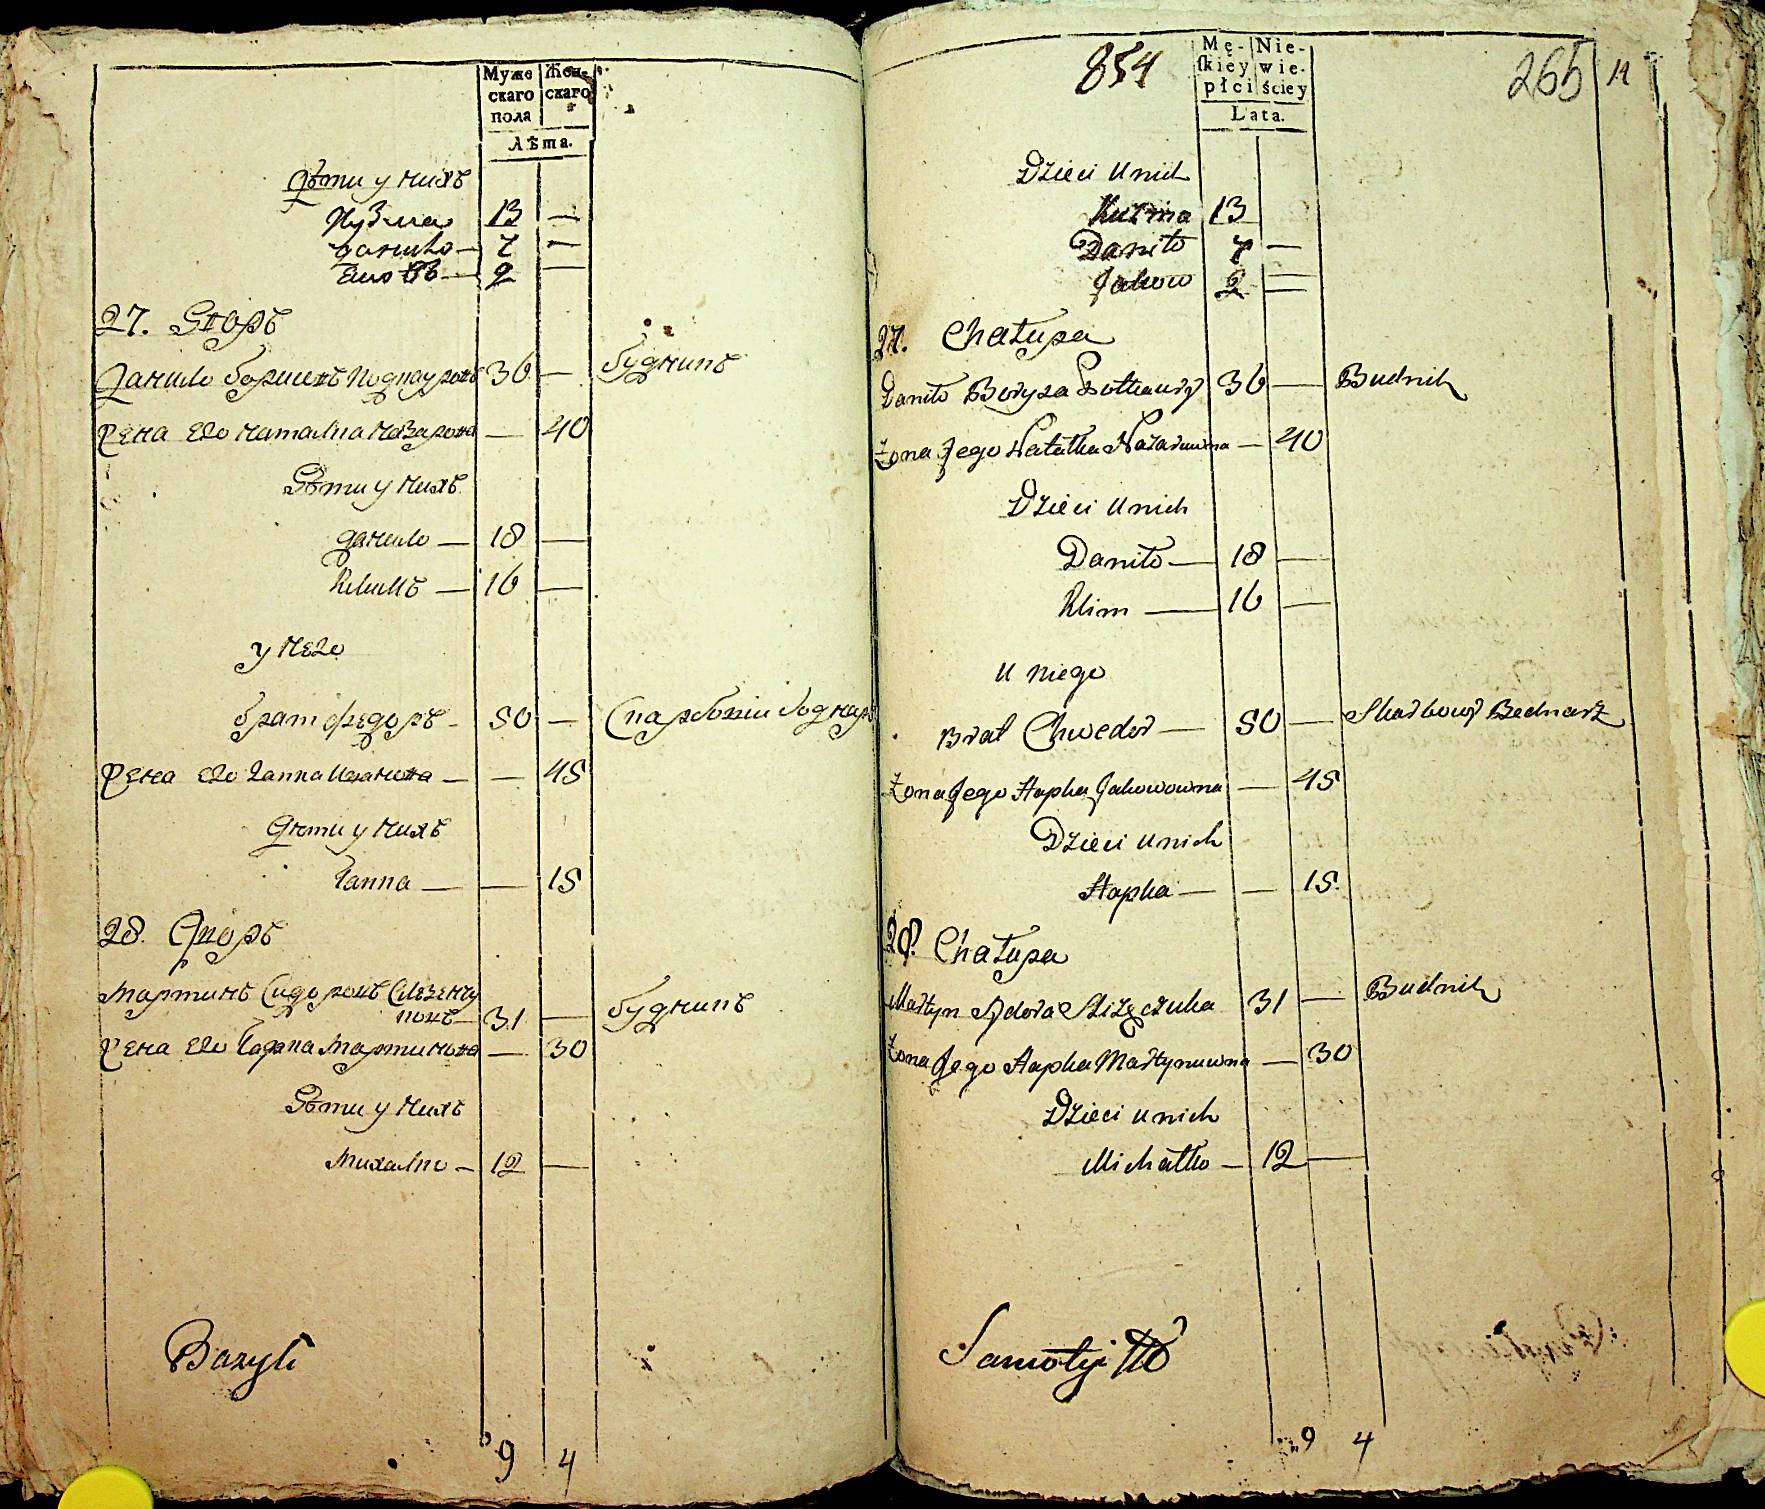 Муже Жен-
скаго скаго
пола
Лѣта.
Дѣти у нихъ
Кузма 13 —
данило — 7 —
Яковъ — 2 —
27. Дворъ
Данило борисовъ 36 — будникъ
Жена его наталка назарова — 40
Дѣти у нихъ
данило — 18 —
Климъ — 16 —
у него
братъ федоръ — 50 — Скарбовій боднар
Жена его Гапка — — 45
Дѣти у нихъ
Гапка — — 15
28. Дворъ
Мартинъ Сидоровъ
31 — будникъ
Жена его Гапка Мартинова — 30
Дѣти у нихъ
Михалко — 12 —
Bazyli
9 4
854
265
14
Mę- Nie-
skiey wie-
płci ściey
Lata.
Dzieci u nich
Kuzma 13
Daniło 7 —
Jakow 2 —
27. Chałupa
Daniło Borysa 36 — Budnik
Żona Jego Natałka Nazaruwna — 40
Dzieci u nich
Daniło — 18 —
Klim — 16 —
u niego
Brat Chwedor — 50 — Skarbowy Bednarz
Żona Jego Hapka Jakowowna — 45
Dzieci u nich
Hapka — — 15.
28. Chałupa
Martyn Sydora 31 — Budnik
Żona Jego Hapka Martynuwna — 30
Dzieci u nich
Michałko — 12 —
9 4